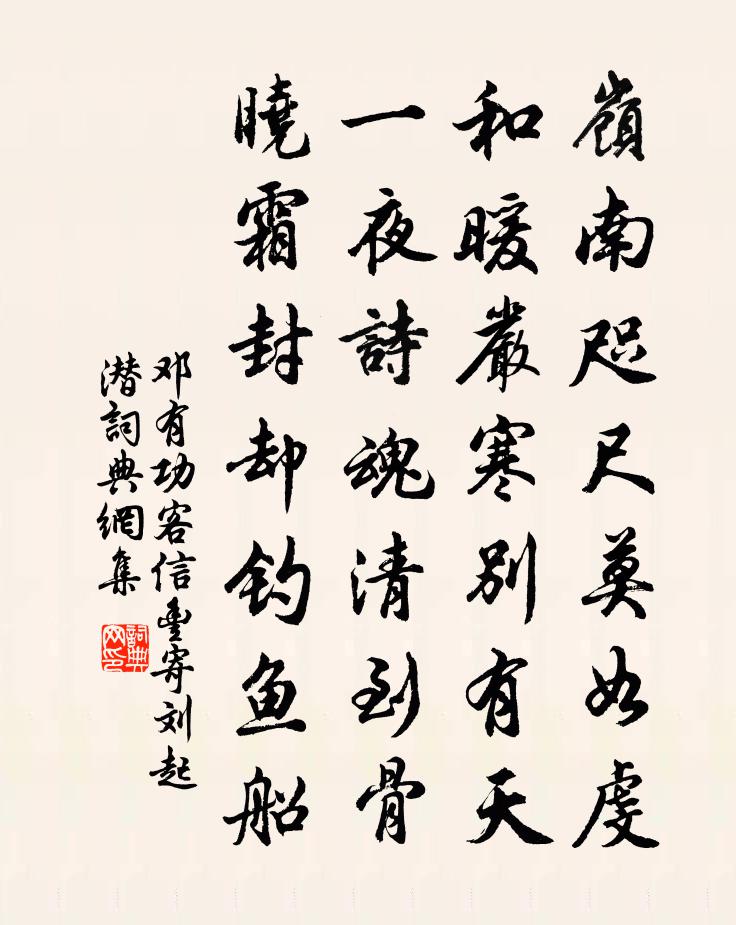 嶺南咫尺莫如虔
和暖嚴寒別有天
一夜詩魂清到骨
曉霜封却钓鱼船
邓有功客信豐寄刘起
潜詞典網集
詞典网印